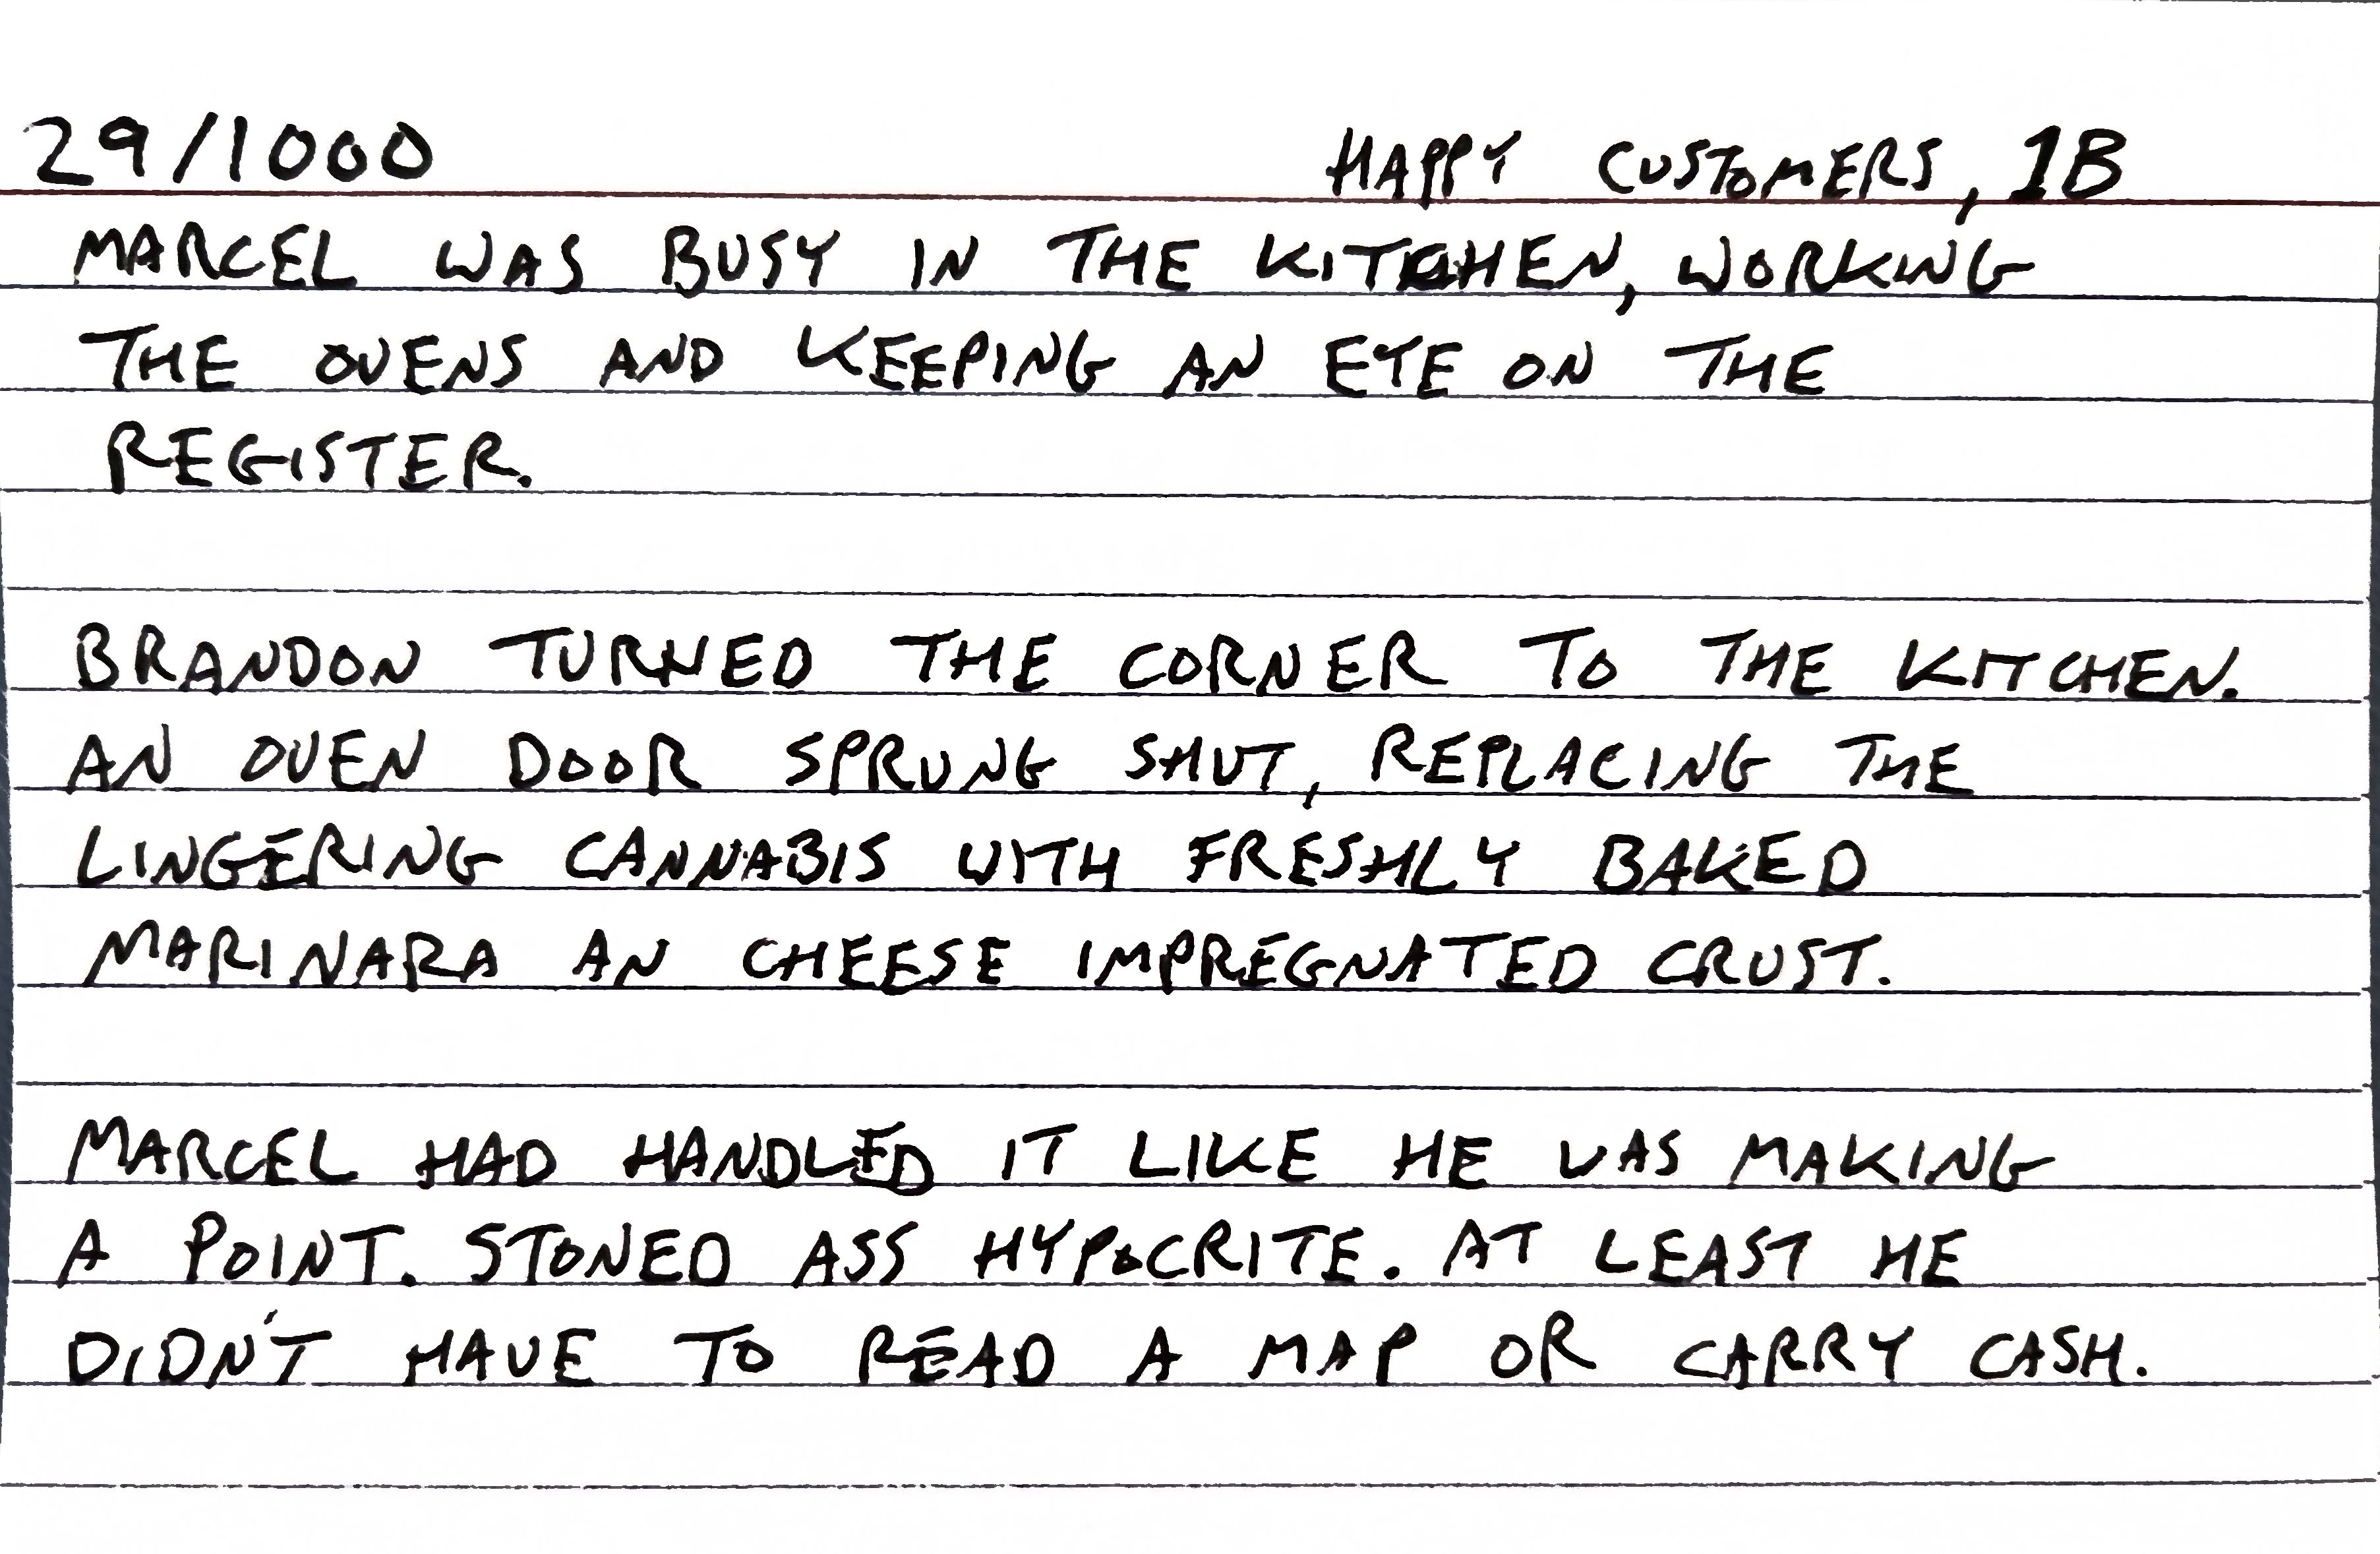 29/1000 HAPPY CUSTOMERS, 1B
MARCEL WAS BUSY IN THE KITCHEN, WORKING
THE OVENS AND KEEPING AN EYE ON THE
REGISTER.
BRANDON TURNED THE CORNER TO THE KITCHEN.
AN OVEN DOOR SPRUNG SHUT, REPLACING THE
LINGERING CANNABIS WITH FRESHLY BAKED
MARINARA AN CHEESE IMPREGNATED CRUST.
MARCEL HAD HANDLED IT LIKE HE WAS MAKING
A POINT. STONED ASS HYPOCRITE. AT LEAST HE
DIDN'T HAVE TO READ A MAP OR CARRY CASH.